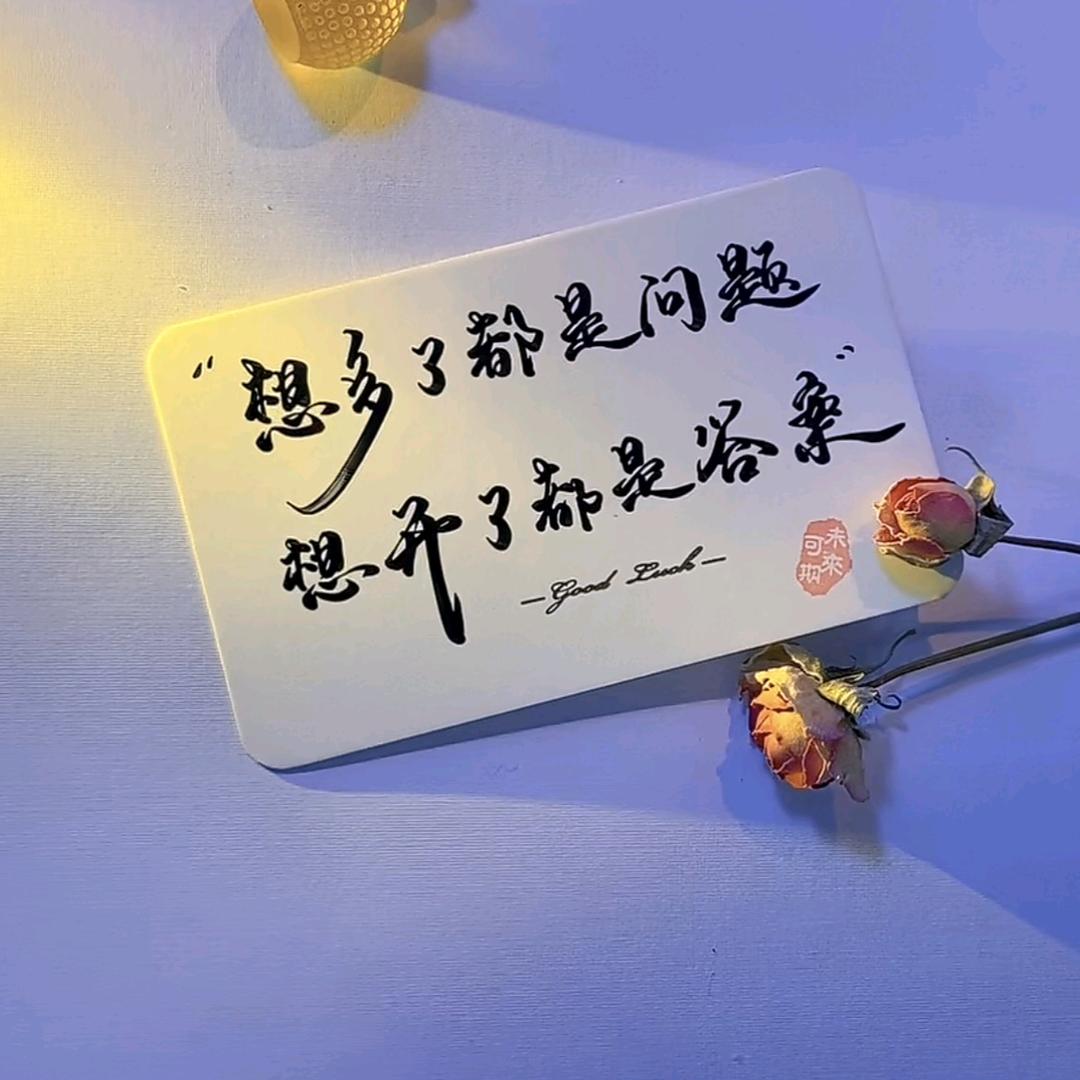 "想多了都是问题
想开了都是答案"
—Good Luck—
未来
可期